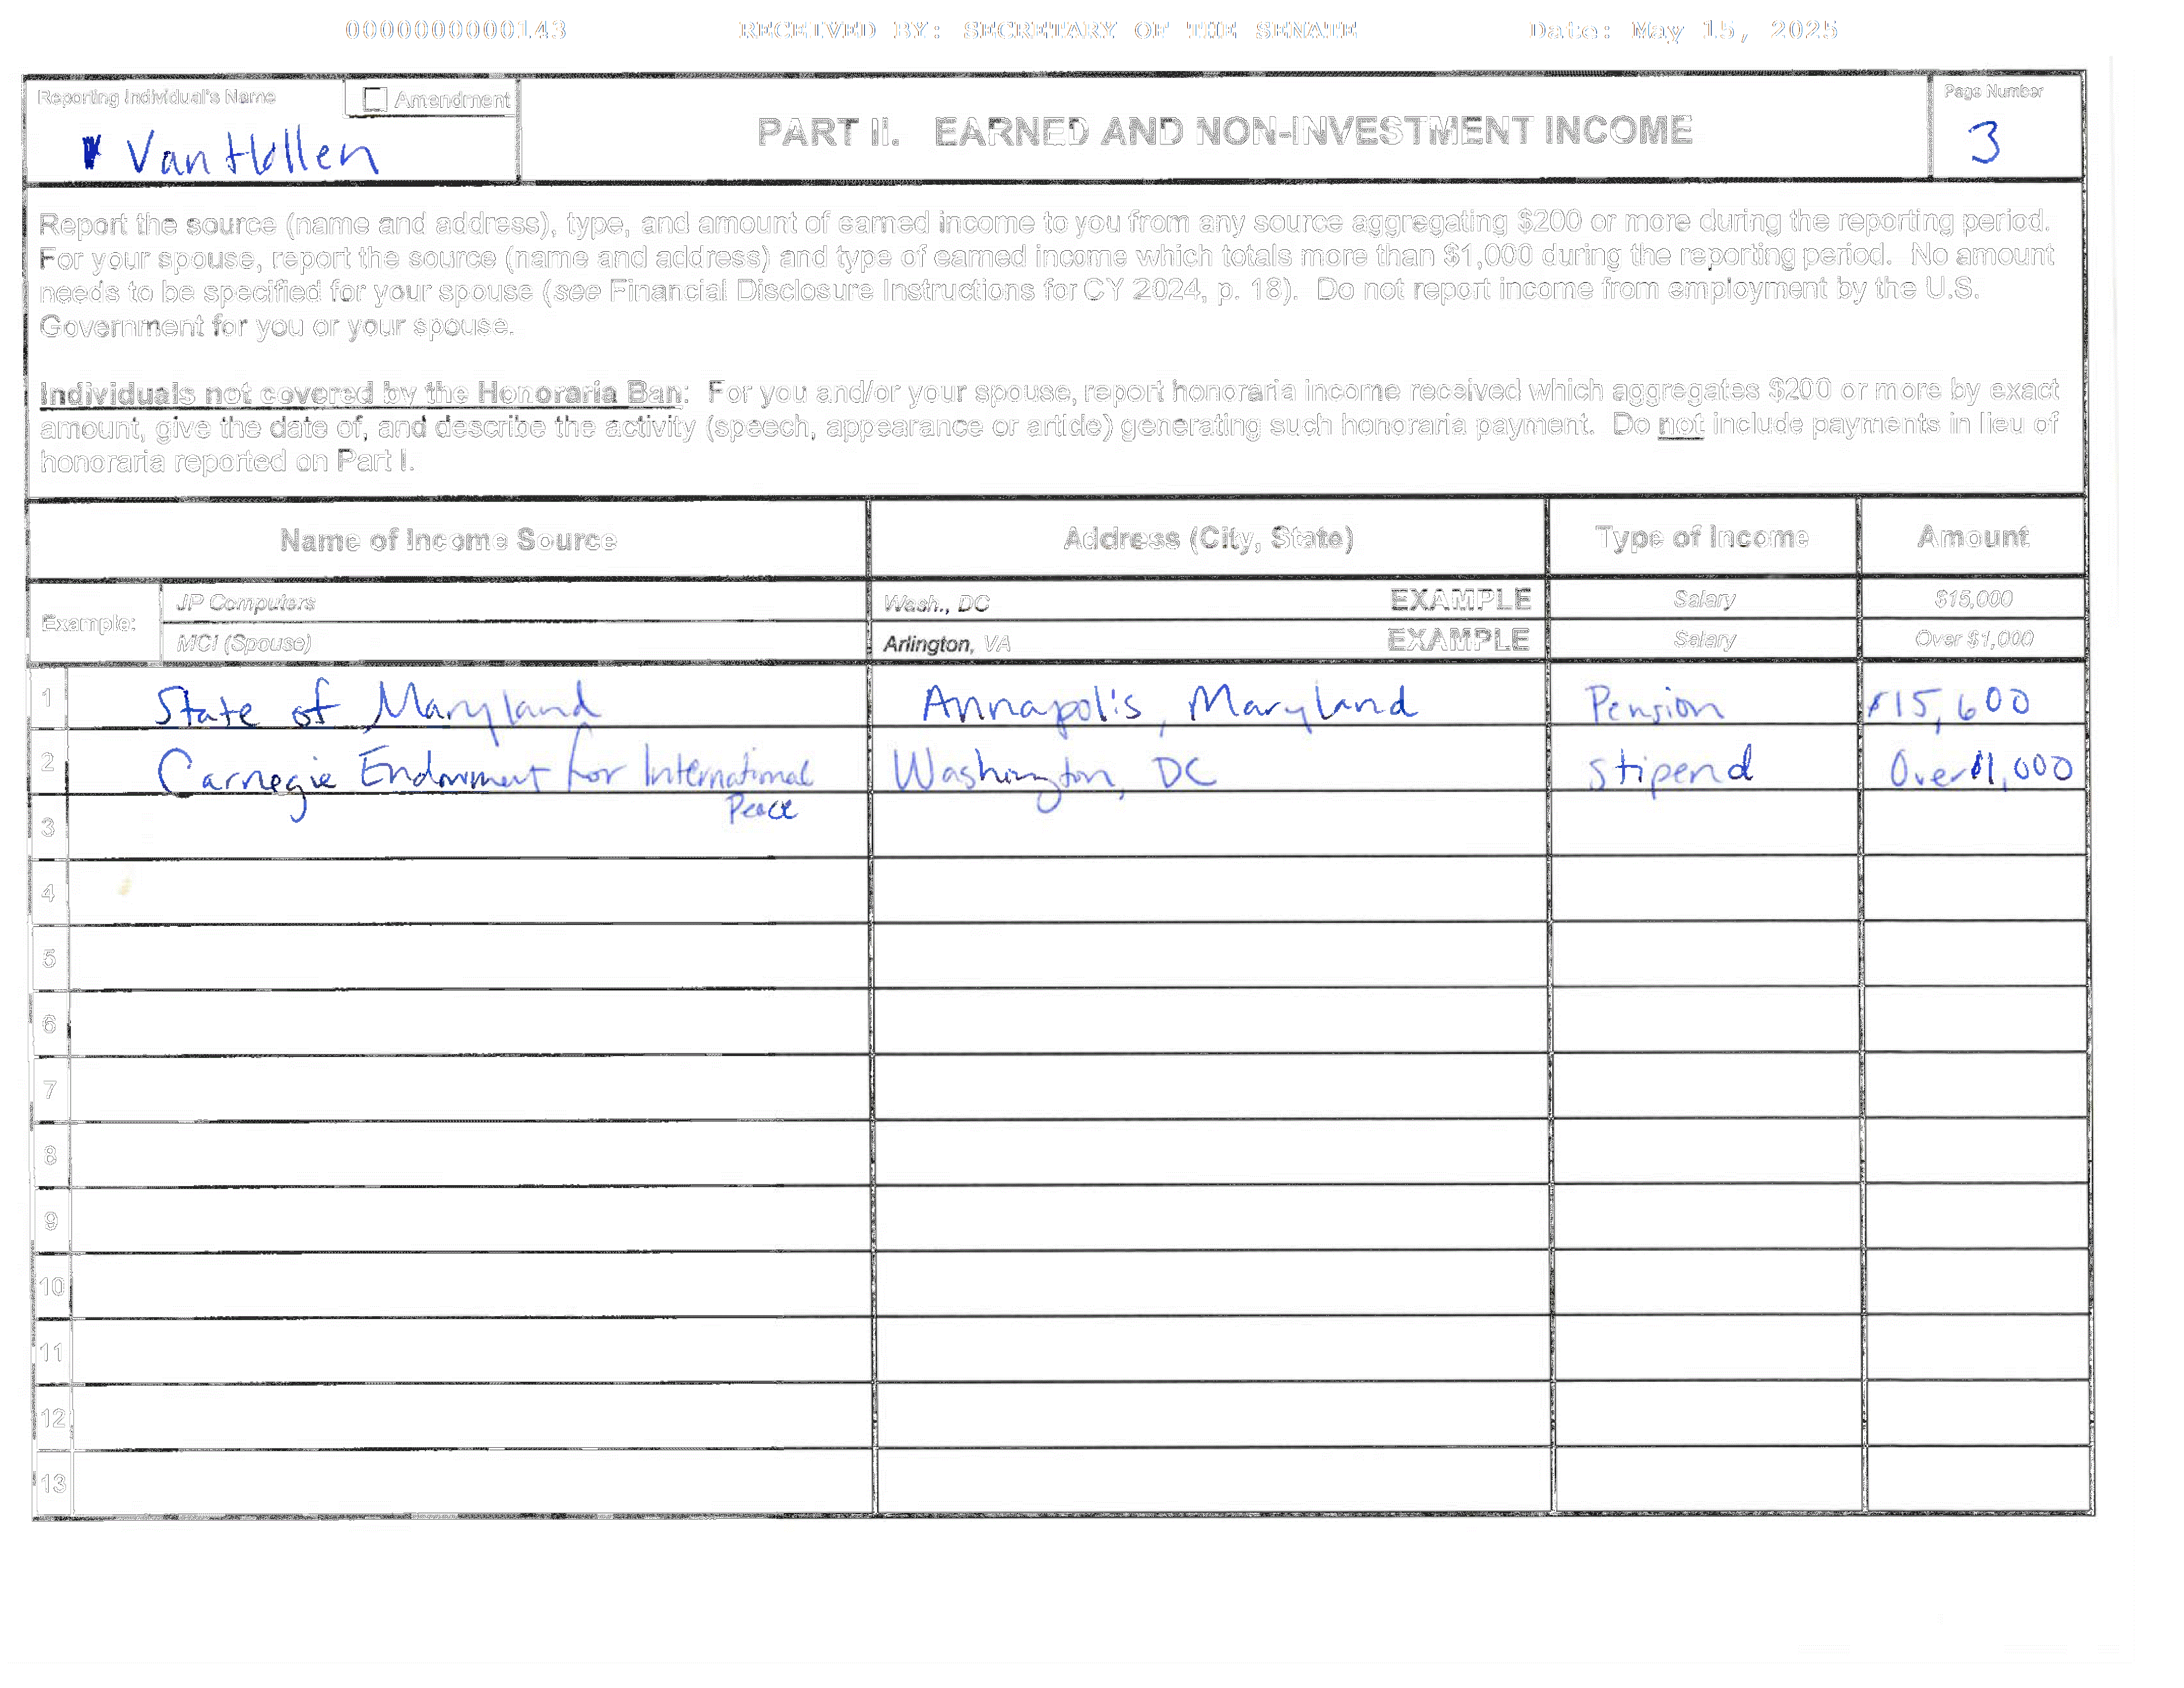 0000000000143 RECEIVED BY: SECRETARY OF THE SENATE Date: May 15, 2025
Reporting Individual's Name
Amendment
Van Hollen
PART II. EARNED AND NON-INVESTMENT INCOME
Page Number
3
Report the source (name and address), type, and amount of earned income to you from any source aggregating $200 or more during the reporting period.
For your spouse, report the source (name and address) and type of earned income which totals more than $1,000 during the reporting period. No amount
needs to be specified for your spouse (see Financial Disclosure Instructions for CY 2024, p. 18). Do not report income from employment by the U.S.
Government for you or your spouse.
Individuals not covered by the Honoraria Ban: For you and/or your spouse, report honoraria income received which aggregates $200 or more by exact
amount, give the date of, and describe the activity (speech, appearance or article) generating such honoraria payment. Do not include payments in lieu of
honoraria reported on Part I.
Name of Income Source Address (City, State) Type of Income Amount
Example:
JP Computers Wash., DC EXAMPLE Salary $15,000
MCI (Spouse) Arlington, VA EXAMPLE Salary Over $1,000
1 State of Maryland Annapolis, Maryland Pension $15,600
2 Carnegie Endowment for International Washington, DC stipend Over $1,000
Peace
3
4
5
6
7
8
9
10
11
12
13